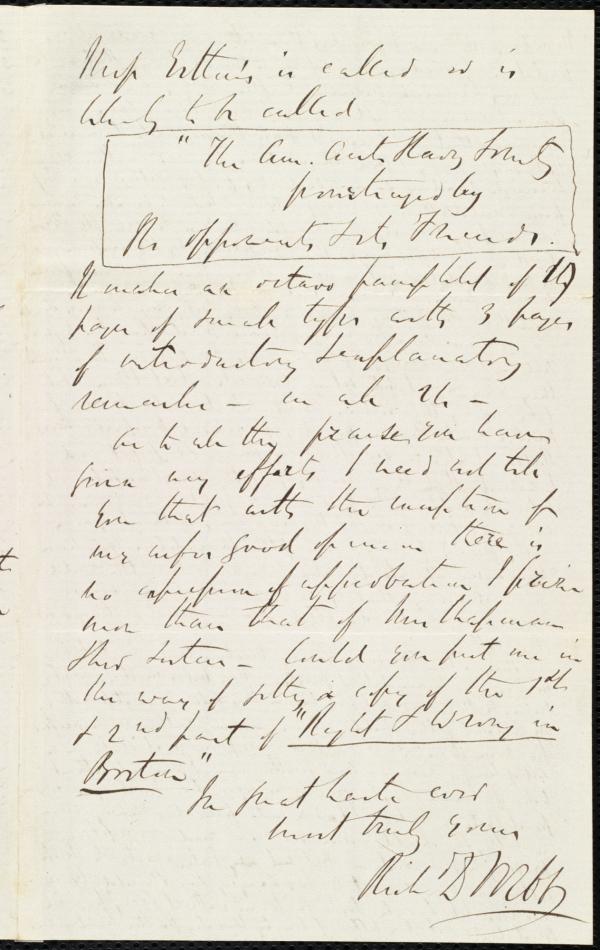 Miss Estlin's is called or is
likely to be called
"The Am. Anti Slavery Society
pourtrayed by
its opponents & its Friends.
It makes an octavo pamphlet of 19
pages of small type with 3 pages
of introductory & explanatory
remarks — in all 22 —
As to all the praise you have
given my efforts I need not tell
you that with the exception of
my wifes good opinion there is
no expression of approbation I prize
more than that of Mrs Chapman
& her sisters — Could you put me in
the way of getting a copy of the 1st
& 2nd part of "Right & Wrong in
Boston"
In great haste ever
most truly yours
Richd D Webb